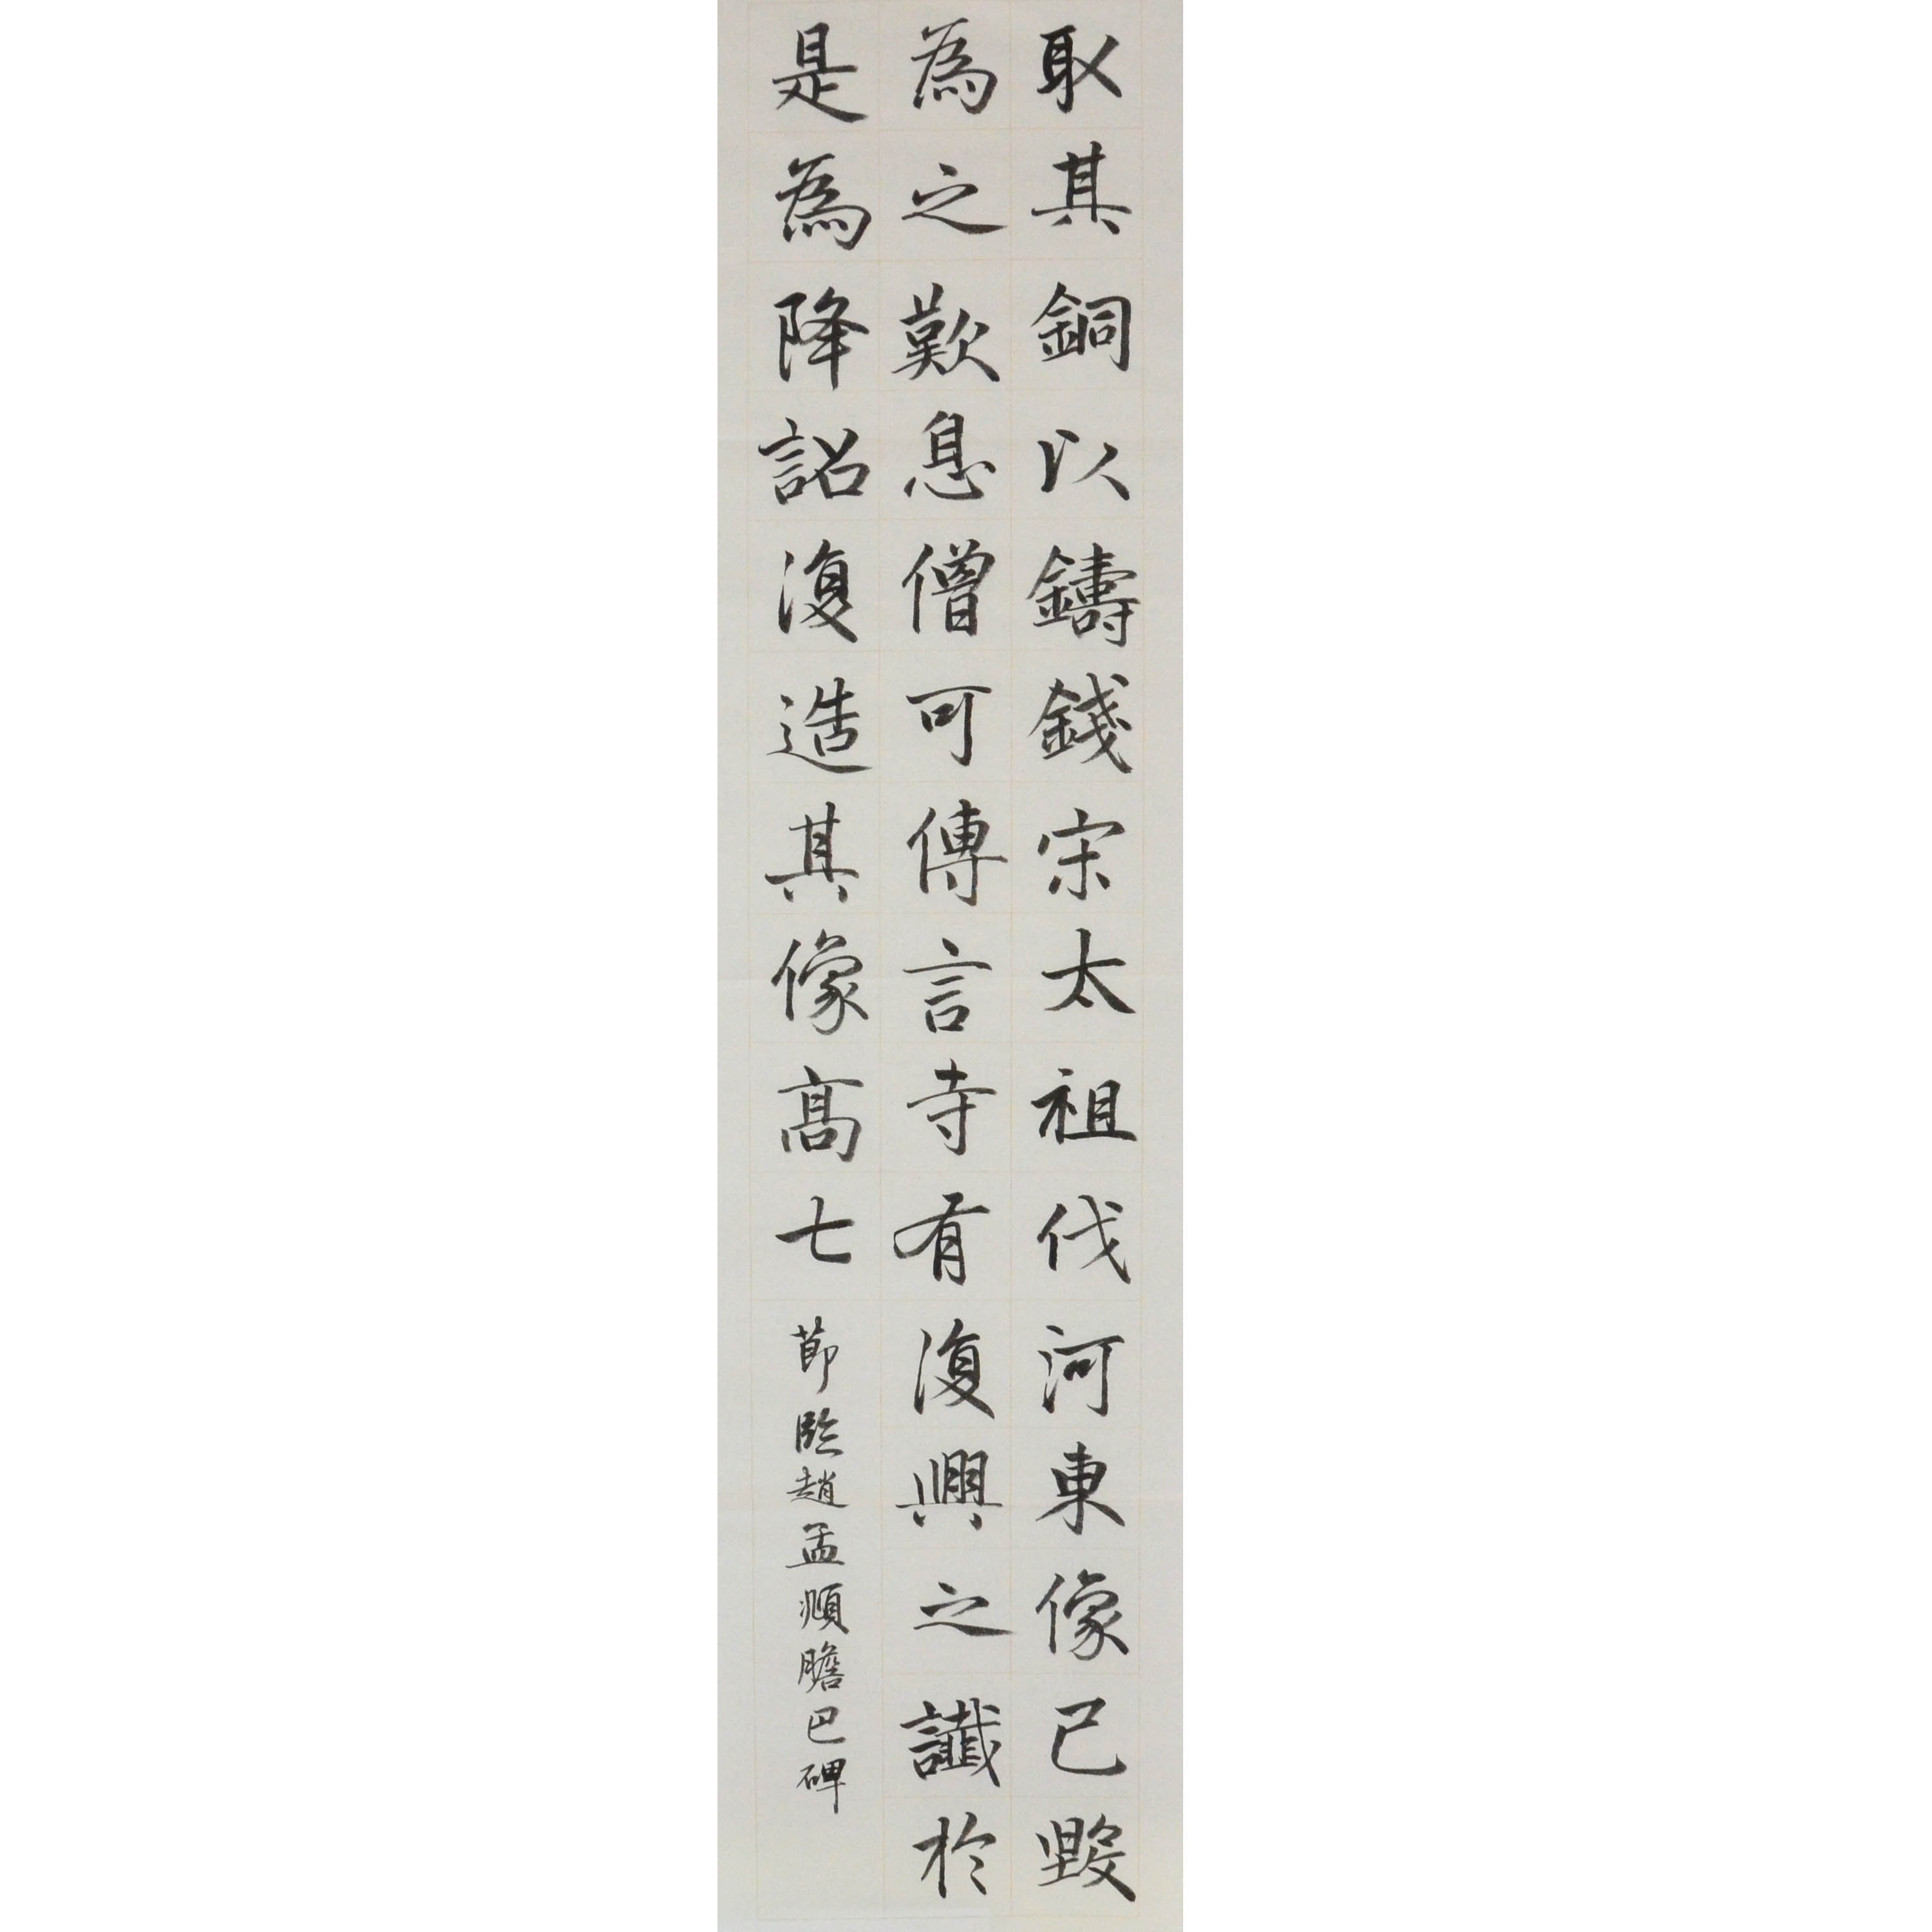 取其銅以鑄錢宋太祖伐河東像已毀
為之歎息僧可傳言寺有復興之讖於
是為降詔復造其像高七
節臨趙孟順膽巴碑